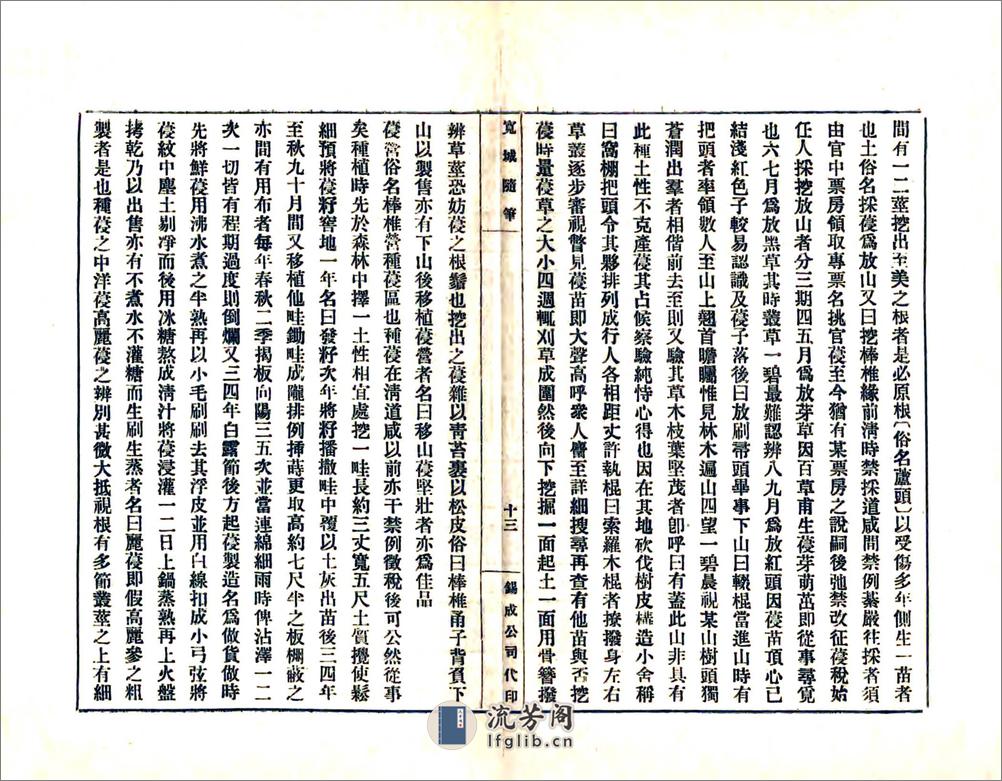 間有一二莖挖出至美之根者是必原根〔俗名蘆頭〕以受傷多年側生一苗者
也土俗名採葠爲放山又曰挖棒椎緣前淸時禁採道咸間禁例綦嚴往採者須
由官中票房領取專票名挑官葠至今猶有某票房之說嗣後弛禁改征葠稅始
任人採挖放山者分三期四五月爲放芽草因百草甫生葠芽萌茁即從事尋覓
也六七月爲放黑草其時叢草一碧最難認辨八九月爲放紅頭因葠苗頂心已
結淺紅色子較易認識及葠子落後曰放刷帚頭畢事下山曰輟棍當進山時有
把頭者率領數人至山上翹首瞻矚惟見林木遍山四望一碧晨視某山樹頭獨
蒼潤出羣者相偕前去至則又驗其草木枝葉堅茂者卽呼曰有蓋此山非具有
此種土性不克產葠其占候察驗純恃心得也因在其地砍伐樹皮構造小舍稱
曰窩棚把頭令其夥排列成行人各相距丈許執棍曰索羅木棍者撩撥身左右
草叢逐步審視瞥見葠苗即大聲高呼衆人齊至詳細搜尋再查有他苗與否挖
葠時量葠草之大小四週輒刈草成圍然後向下挖掘一面起土一面用骨簪撥
寬城隨筆
十三
錫成公司代印
辨草莖恐妨葠之根鬚也挖出之葠雜以靑苔裹以松皮俗曰棒椎甬子背負下
山以製售亦有下山後移植葠營者名曰移山葠堅壯者亦爲佳品
葠營俗名棒椎營種葠區也種葠在淸道咸以前亦干禁例徵稅後可公然從事
矣種植時先於森林中擇一土性相宜處挖一畦長約三丈寬五尺土質攪使鬆
細預將葠籽窖地一年名曰發籽次年將籽播撒畦中覆以土灰出苗後三四年
至秋九十月間又移植他畦鋤畦成隴排例揷蒔更取高約七尺半之板棚蔽之
亦間有用布者每年春秋二季揭板向陽三五次並當連綿細雨時俾沾澤一二
次一切皆有程期過度則倒爛又三四年白露節後方起葠製造名爲做貨做時
先將鮮葠用沸水煮之半熟再以小毛刷刷去其浮皮並用白線扣成小弓弦將
葠紋中塵土剔凈而後用冰糖熬成淸汁將葠浸灌一二日上鍋蒸熟再上火盤
烤乾乃以出售亦有不煮水不灌糖而生刷生蒸者名曰麗葠即假高麗參之粗
製者是也種葠之中洋葠高麗葠之辨別甚微大抵視根有多節叢莖之上有細
流芳阁
lfglib.cn